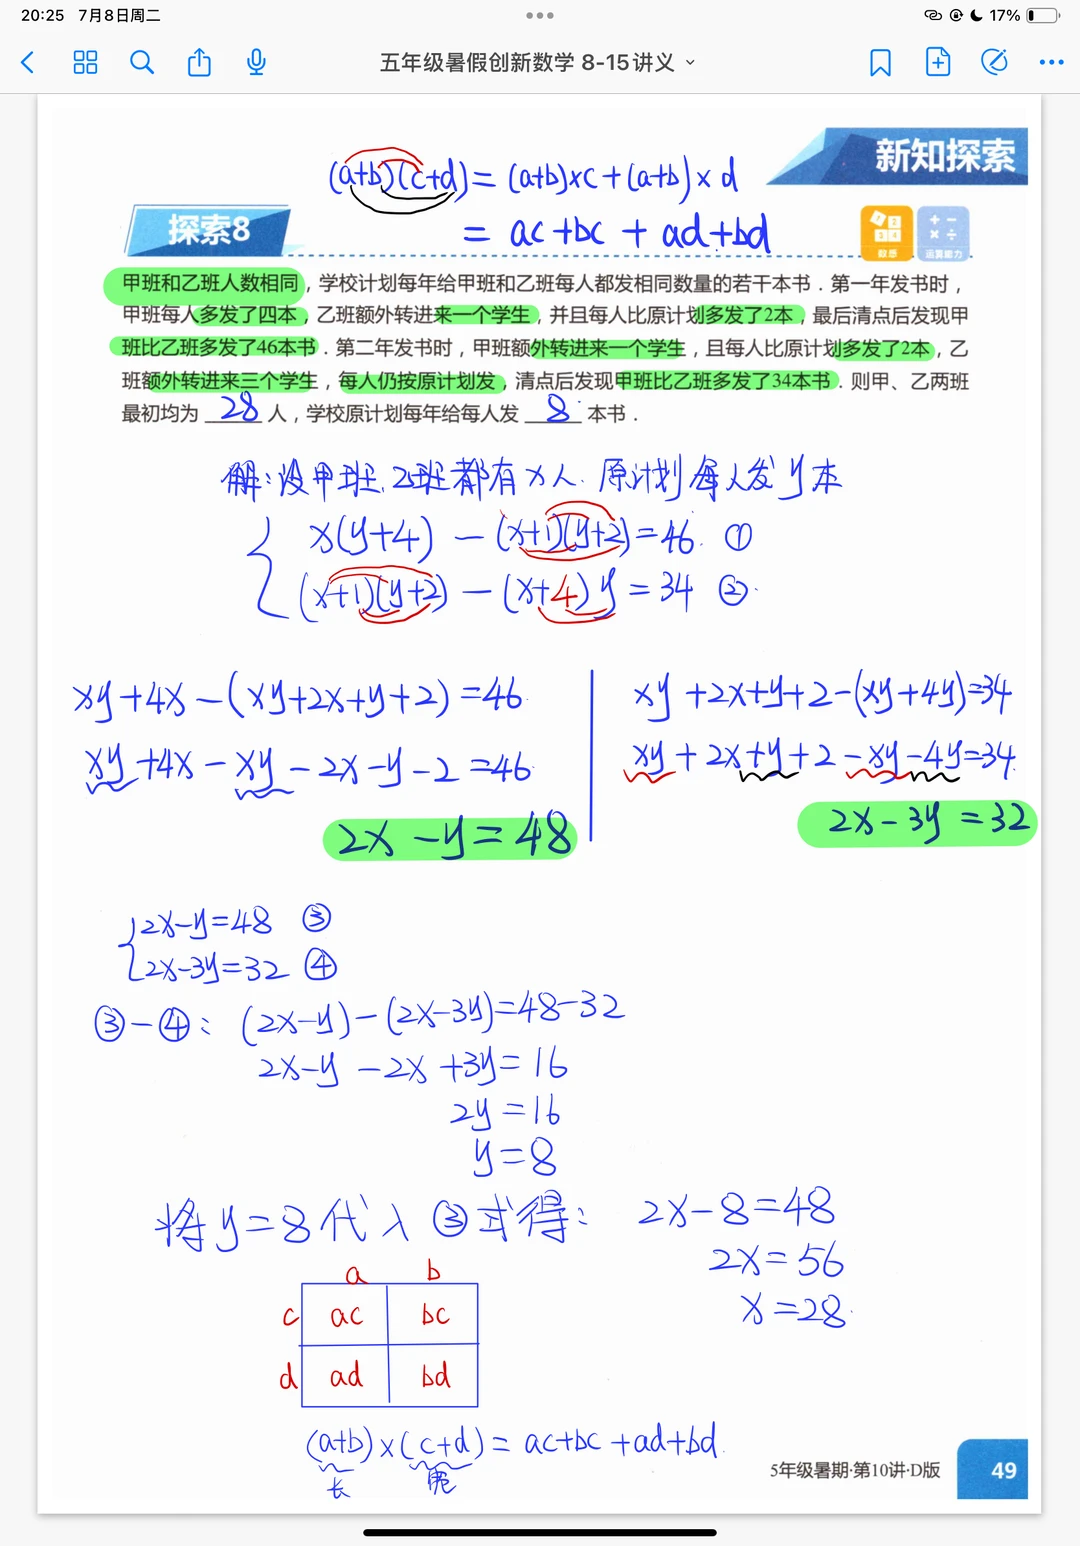 20:25 7月8日周二
17%
五年级暑假创新数学 8-15讲义
新知探索
(a+b)(c+d)=(a+b)×c+(a+b)×d
=ac+bc+ad+bd
探索8
数感
运算能力
甲班和乙班人数相同，学校计划每年给甲班和乙班每人都发相同数量的若干本书．第一年发书时，
甲班每人多发了四本，乙班额外转进来一个学生，并且每人比原计划多发了2本，最后清点后发现甲
班比乙班多发了46本书．第二年发书时，甲班额外转进来一个学生，且每人比原计划多发了2本，乙
班额外转进来三个学生，每人仍按原计划发，清点后发现甲班比乙班多发了34本书．则甲、乙两班
最初均为 28 人，学校原计划每年给每人发 8 本书．
解：设甲班、乙班都有x人．原计划每人发y本
x(y+4)-(x+1)(y+2)=46. ①
(x+1)(y+2)-(x+4)y=34 ②.
xy+4x-(xy+2x+y+2)=46
xy+4x-xy-2x-y-2=46
2x-y=48
xy+2x+y+2-(xy+4y)=34
xy+2x+y+2-xy-4y=34
2x-3y=32
2x-y=48 ③
2x-3y=32 ④
③-④：(2x-y)-(2x-3y)=48-32
2x-y-2x+3y=16
2y=16
y=8
将y=8代入③式得：2x-8=48
2x=56
x=28
a b
c ac bc
d ad bd
(a+b)×(c+d)=ac+bc+ad+bd
长 宽
5年级暑期·第10讲·D版 49